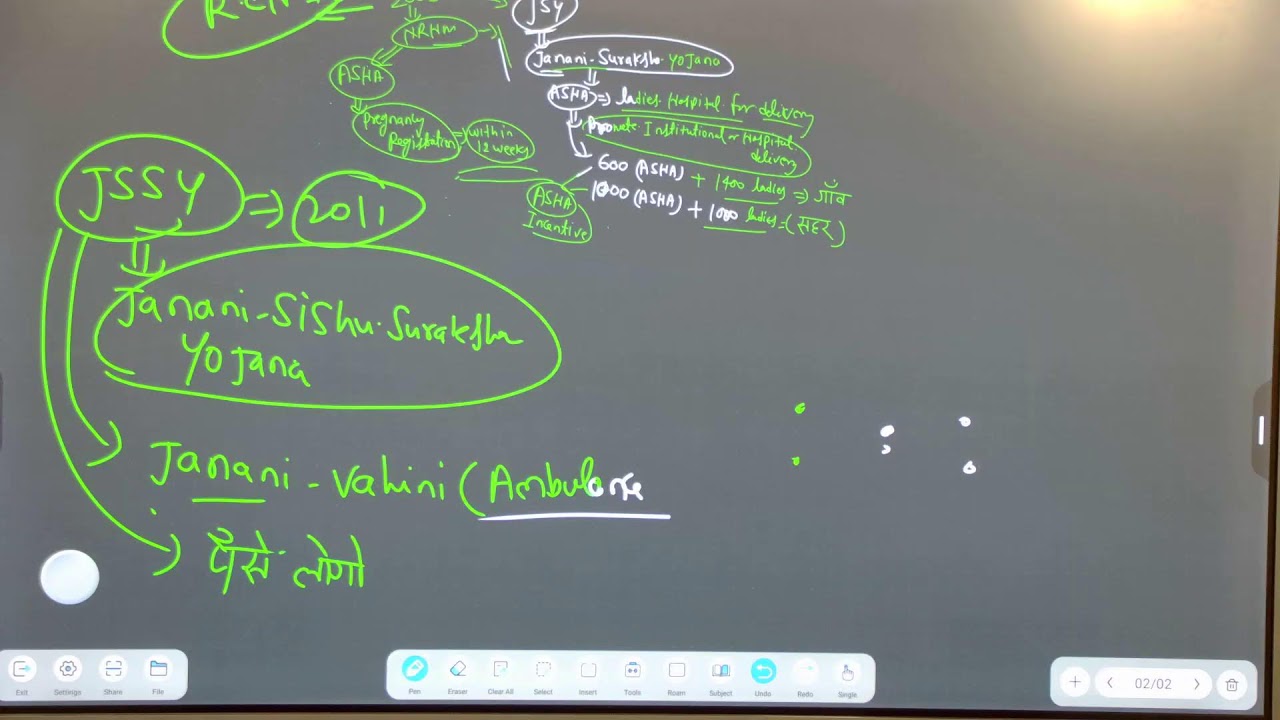 JSY
NRHM
Janani-Suraksha YOJana
ASHA
ASHA => ladies Hospital for delivery
Pregnancy Registration
within 12 weeks
Promote Institutional or Hospital delivery
600 (ASHA) + 1400 ladies => गाँव
1000 (ASHA) + 1000 ladies = (सहर)
ASHA Incentive
JSSY => 2011
Janani-SiShu.Suraksha
YOJana
Janani-Vahini (Ambulance
लोगो
Exit Settings Share File
Pen Eraser Clear All Select Insert Tools Roam Subject Undo Redo Single
02/02